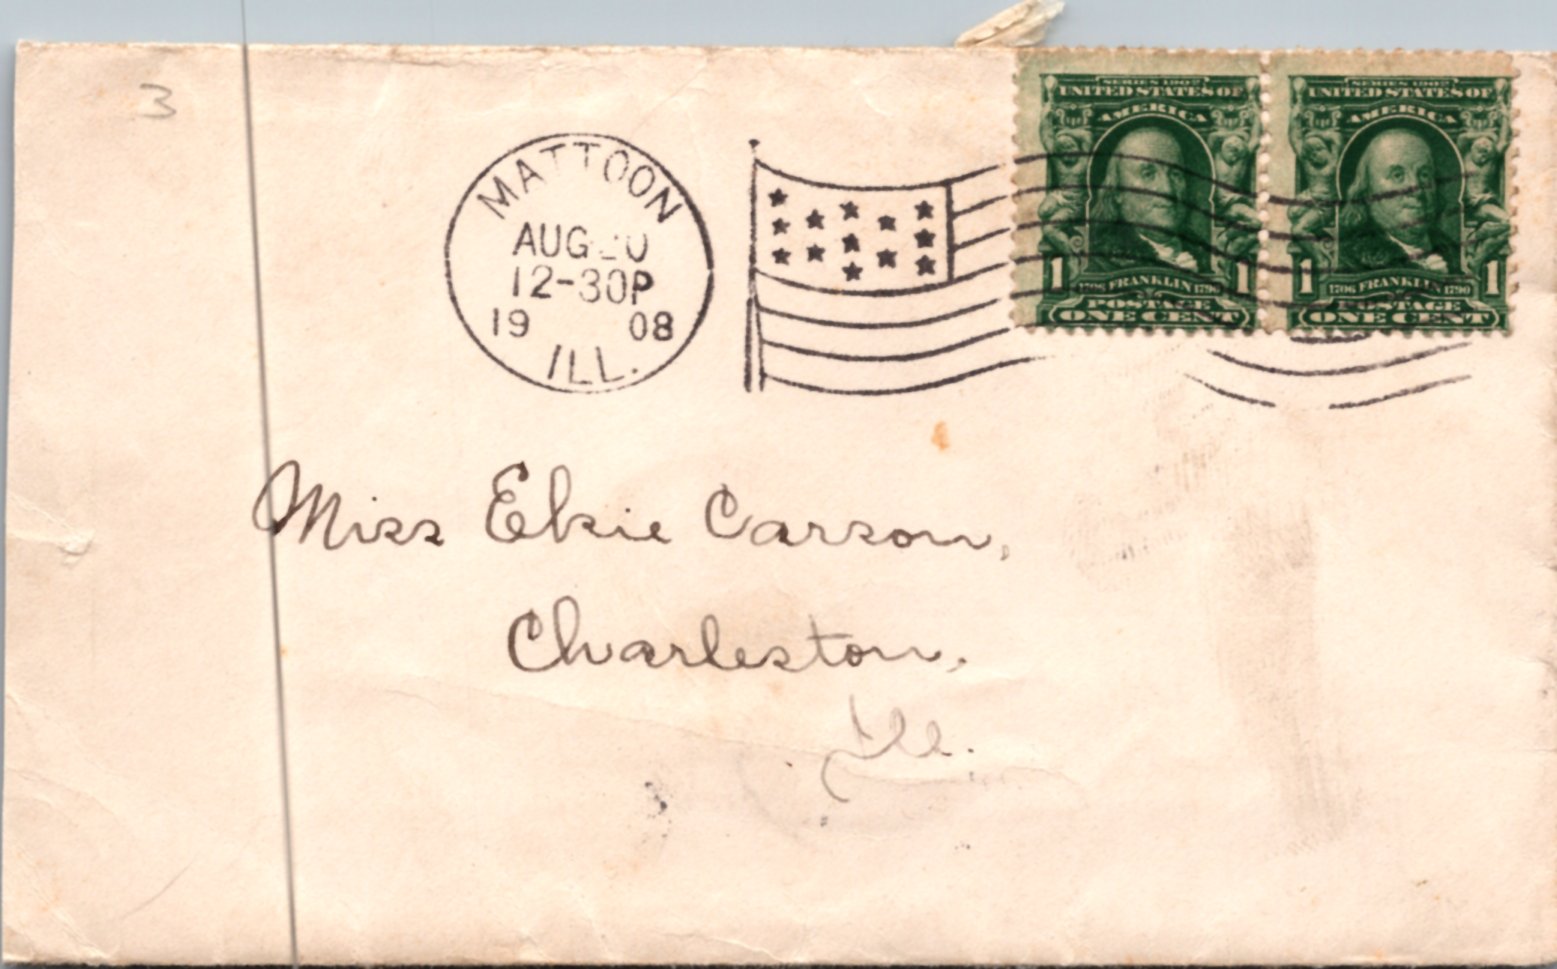 3
MATTOON
AUG 20
12-30P
19 08
ILL.
SERIES 1902
UNITED STATES OF
AMERICA
1 1706 FRANKLIN 1790 1
POSTAGE
ONE CENT
SERIES 1902
UNITED STATES OF
AMERICA
1 1706 FRANKLIN 1790 1
POSTAGE
ONE CENT
Miss Elsie Carson,
Charleston,
Ill.